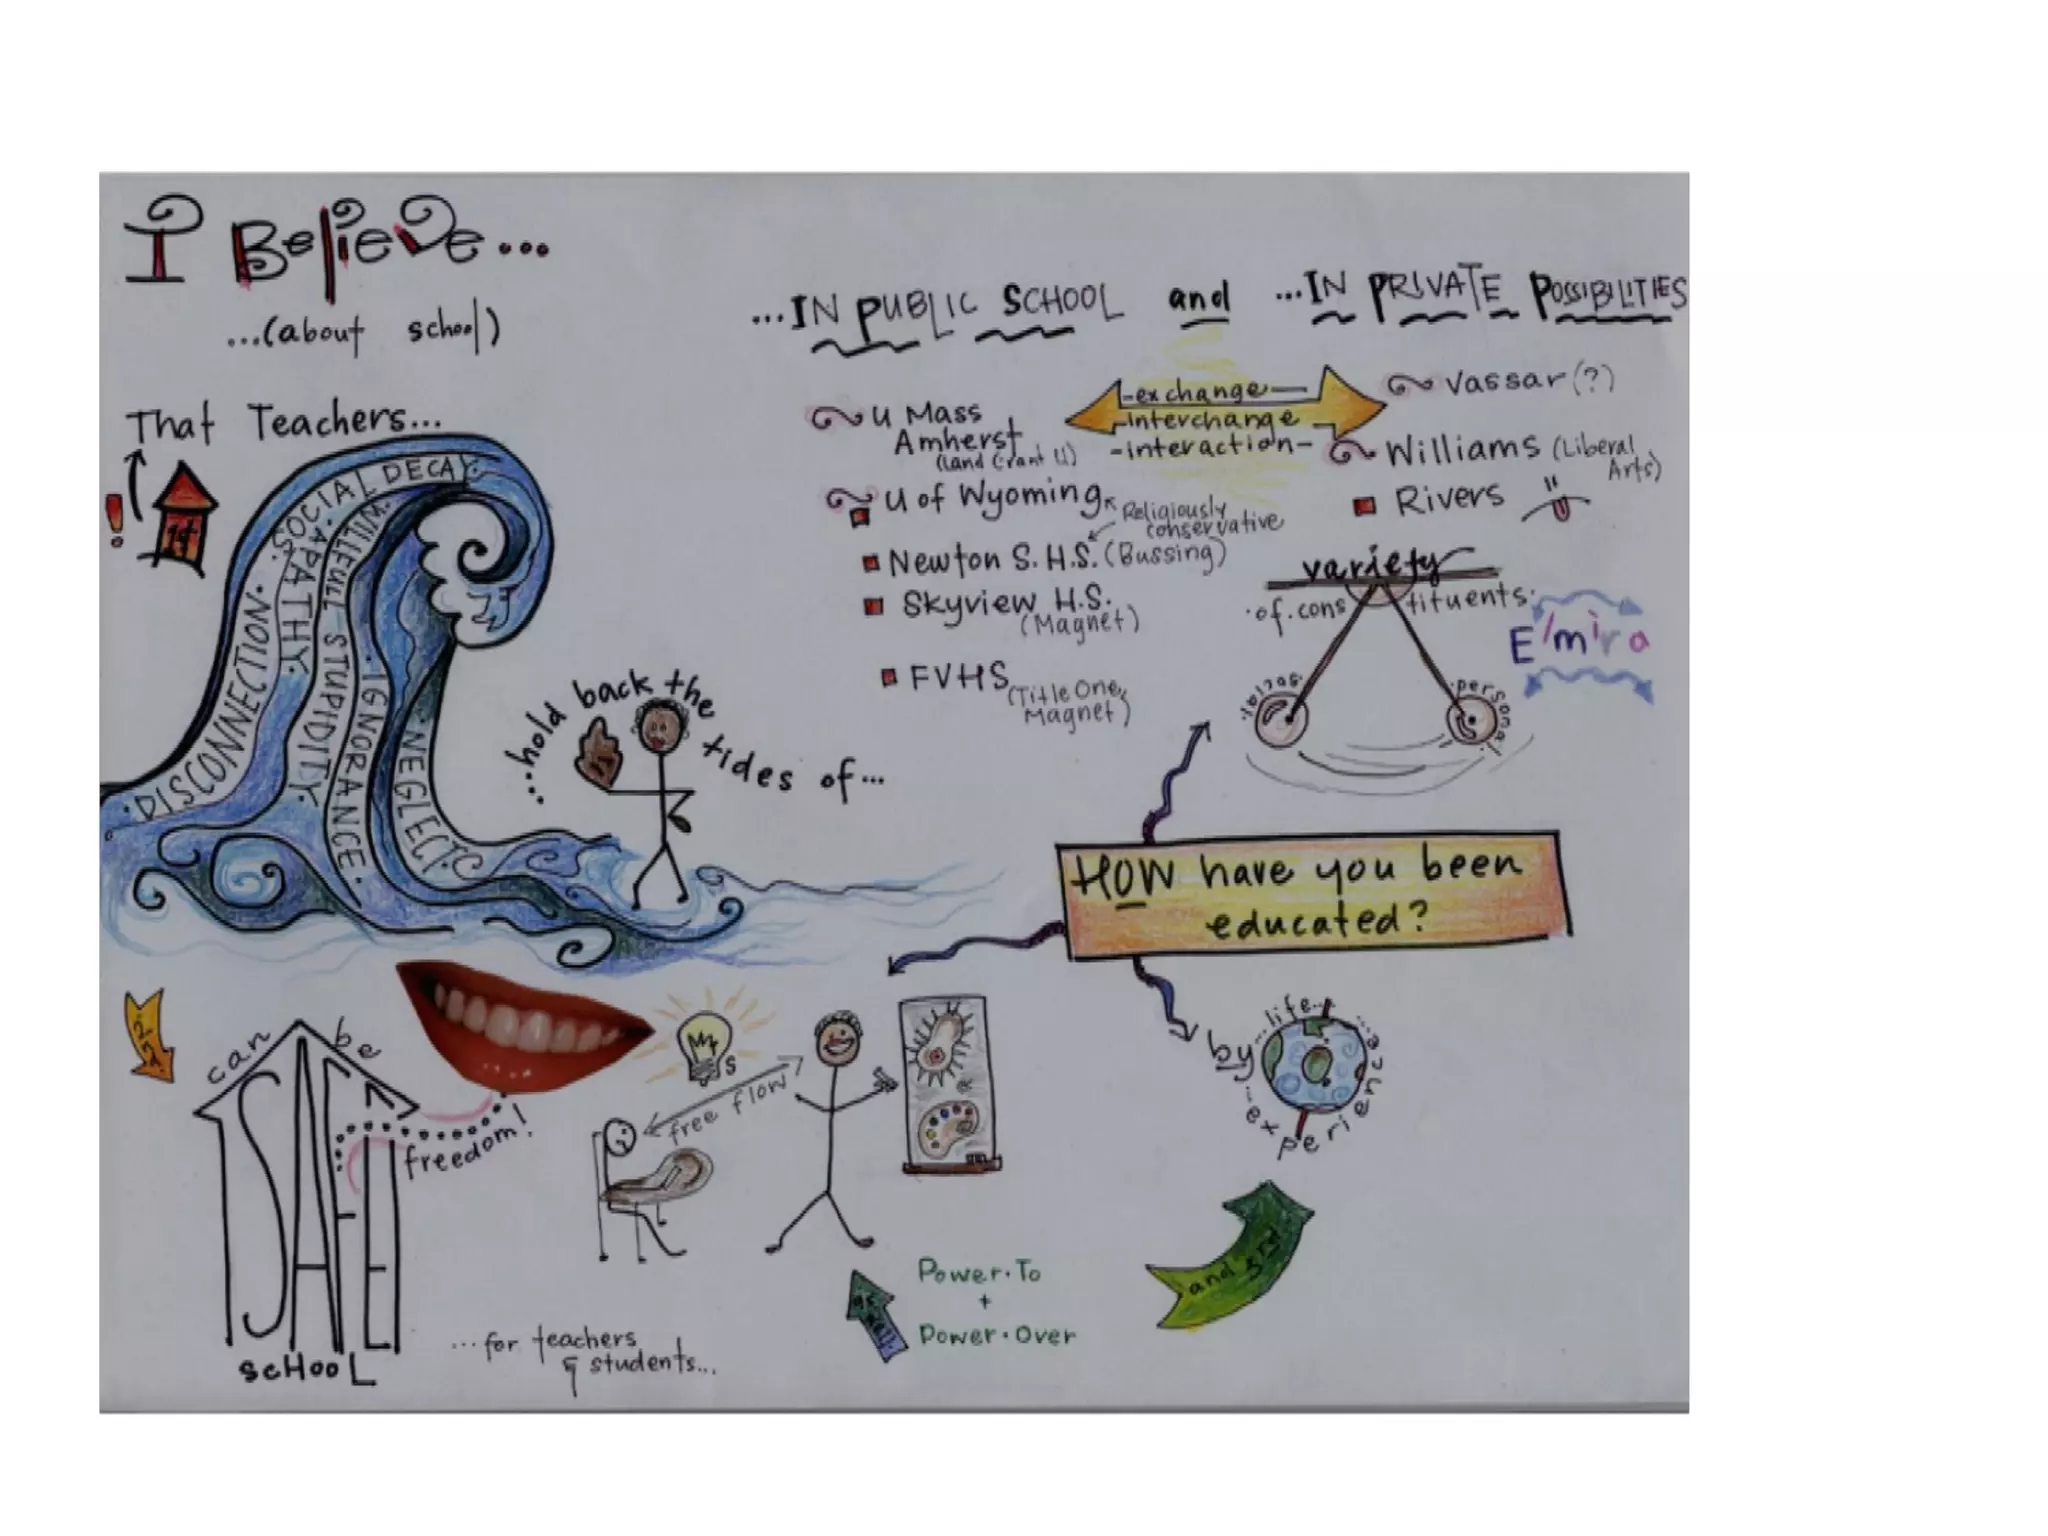 I BelieVe...
...(about school)
That Teachers...
!
1st
.DISCONNECTION.
.SOCIAL DECAY.
.APATHY.
.WILLFULL STUPIDITY.
.IGNORANCE.
.NEGLECT.
...hold back the tides of...
...IN PUBLIC SCHOOL and ...IN PRIVATE POSSIBILITIES
-exchange-
-Interchange
-interaction-
U Mass
Amherst
(Land Grant U)
U of Wyoming
Religiously
conservative
Newton S.H.S. (Bussing)
Skyview H.S.
(Magnet)
FVHS
(Title One,
Magnet)
Vassar(?)
Williams (Liberal
Arts)
Rivers
variety
.of.constituents.
.social.
.personal.
Elmira
HOW have you been
educated?
by...life...
...experience...
and 3rd
2nd
can be
SAFE
scHooL
freedom!
free flow
...for teachers
& students...
Power.To
+
Power.Over